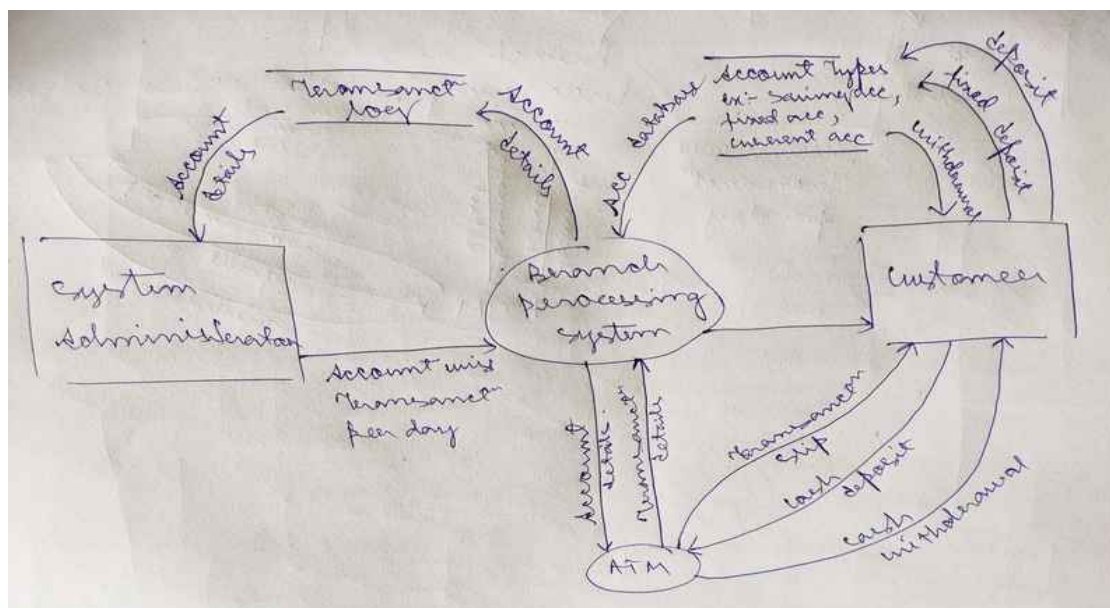 Transanctn
log
Account
details
Account
details
Acc
database
Account Types
ex:- Saving acc,
fixed acc,
current acc
deposit
fixed
deposit
withdrawal
System
Administrator
Branch
processing
system
Customer
Account wise
Transanctn
per day
Account
details
Transanctn
details
Transanction
slip
cash
deposit
cash
withdrawal
ATM